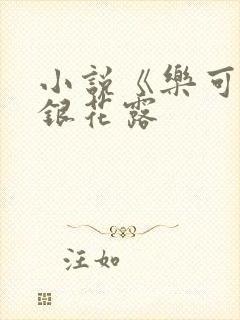 小說《樂可
銀花露
汪如